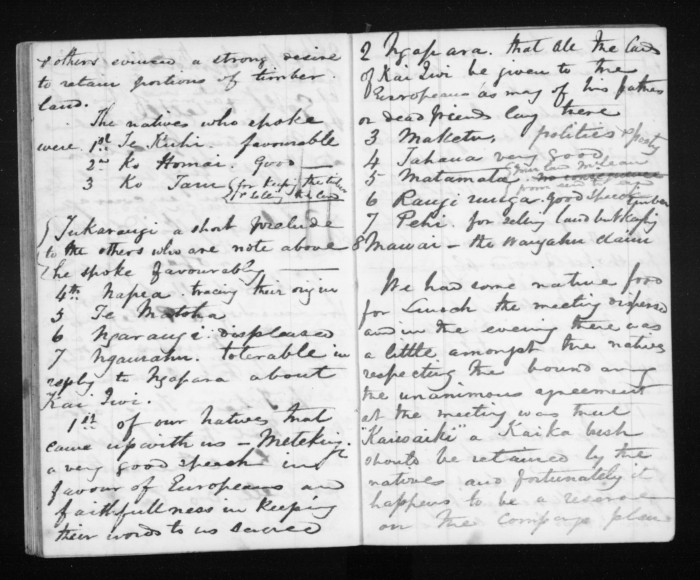 & others evinced a strong desire
to retain portions of timber
land.
The natives who spoke
were 1st Te Kuhi. favourable
2nd Ko Homai. good —
3 Ko Taru for Keeping the timber
for selling the land
Tukarangi a short prelude
to the others who are note above
he spoke favourably —
4th Napea. tracing their origin
5 Te Matoha
6 Ngarangi. displeased
7 Ngaurahu. tolerable in
reply to Ngapara about
Kai Iwi.
1st of our natives that
came up with us – Metekingi
a very good speech in
favour of Europeans and
faithfullness in Keeping
their words to us sacred
2 Ngapara. that all the land
of Kai Iwi be given to the
Europeans as many of his fathers
or dead friends lay there
3 Maketu, politics & party
4 Tahana very good
5 Matamata
6 Rangi runga. good speech
7 Pehi. for selling land but Keeping timber
8 Mawai – the Wangahu claim
We had some native food
for Lunch the meeting dispersed
and in the evening there was
a little amongst the natives
respecting the boundary
the unanimous agreement
at the meeting was that
"Kaiwaiki" a Kaika bush
should be retained by the
natives and fortunately it
happens to be a reserve
on the Companys plan